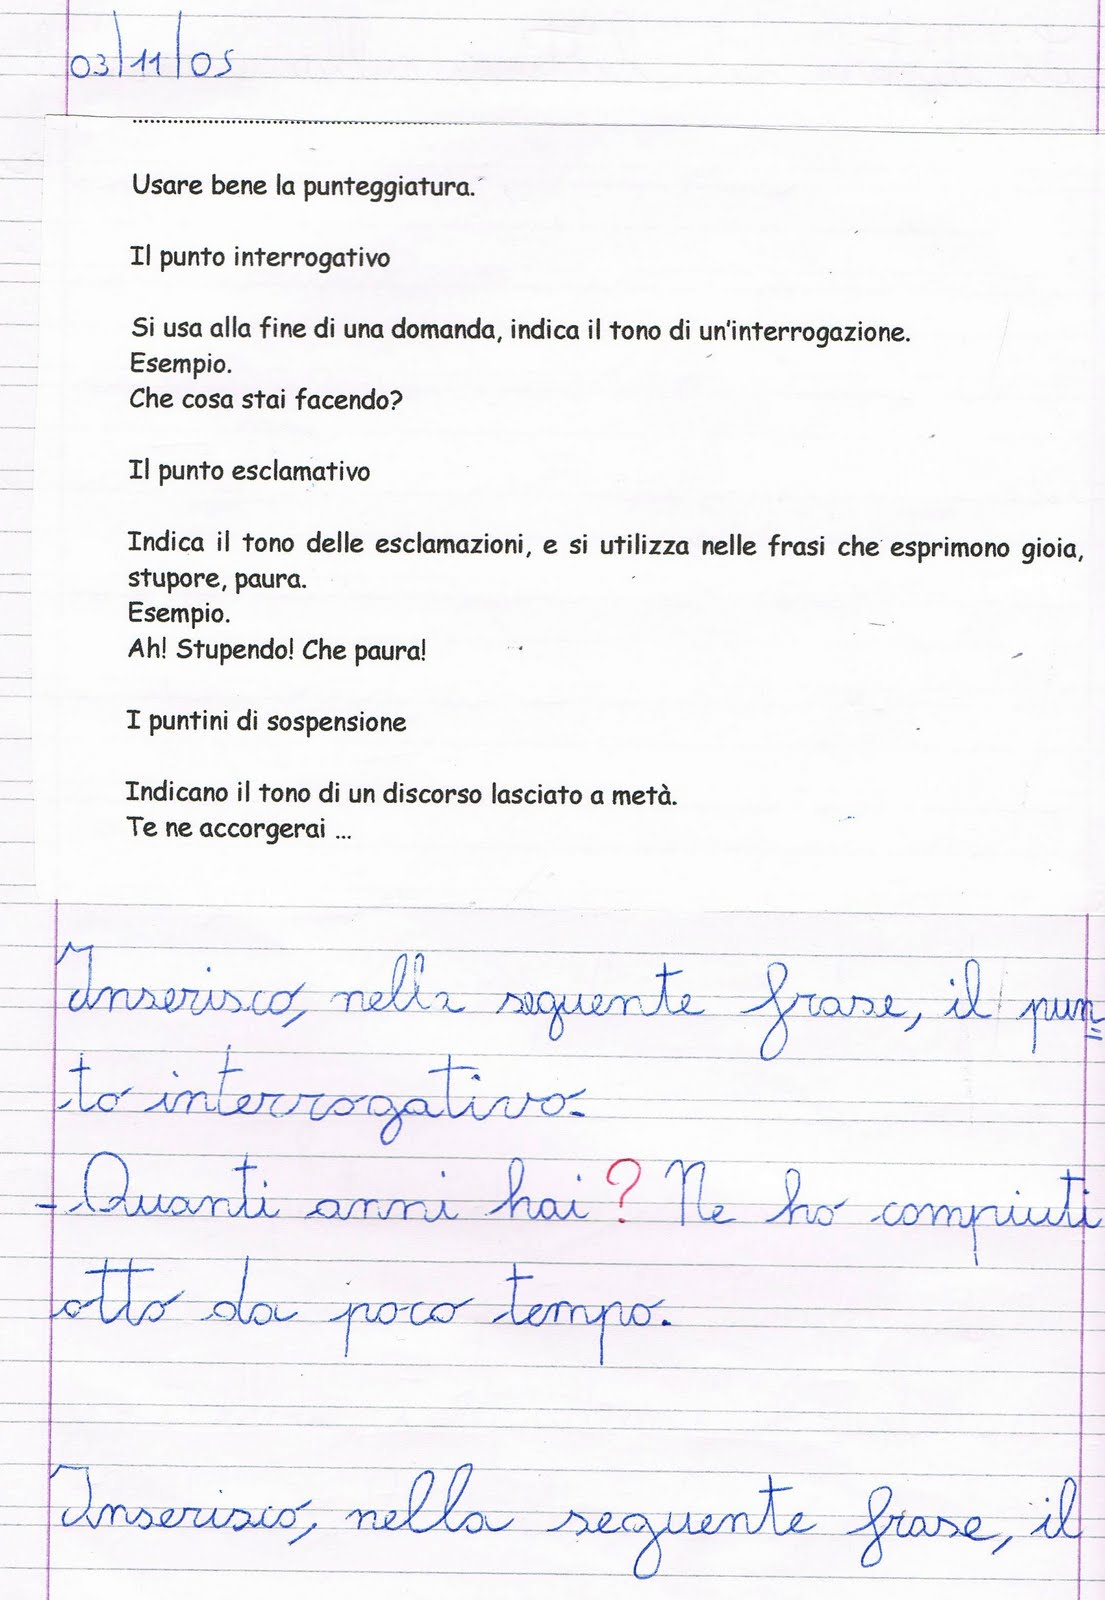 03|11|05
Usare bene la punteggiatura.
Il punto interrogativo
Si usa alla fine di una domanda, indica il tono di un'interrogazione.
Esempio.
Che cosa stai facendo?
Il punto esclamativo
Indica il tono delle esclamazioni, e si utilizza nelle frasi che esprimono gioia,
stupore, paura.
Esempio.
Ah! Stupendo! Che paura!
I puntini di sospensione
Indicano il tono di un discorso lasciato a metà.
Te ne accorgerai ...
Inserisco, nella seguente frase, il pun=
to interrogativo.
-Quanti anni hai? Ne ho compiuti
otto da poco tempo.
Inserisco, nella seguente frase, il